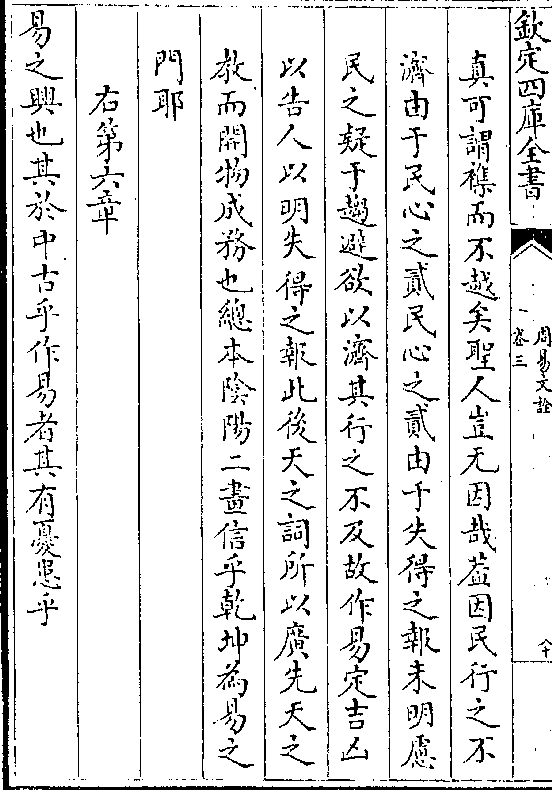 欽定四庫全書
周易文詮
卷三
六十
真可謂襍而不越矣聖人豈无因哉葢因民行之不
濟由于民心之貳民心之貳由于失得之報未明慮
民之疑于趨避欲以濟其行之不及故作易定吉凶
以告人以明失得之報此後天之詞所以廣先天之
教而開物成務也總本陰陽二畫信乎乾坤為易之
門耶
右第六章
易之興也其於中古乎作易者其有憂患乎